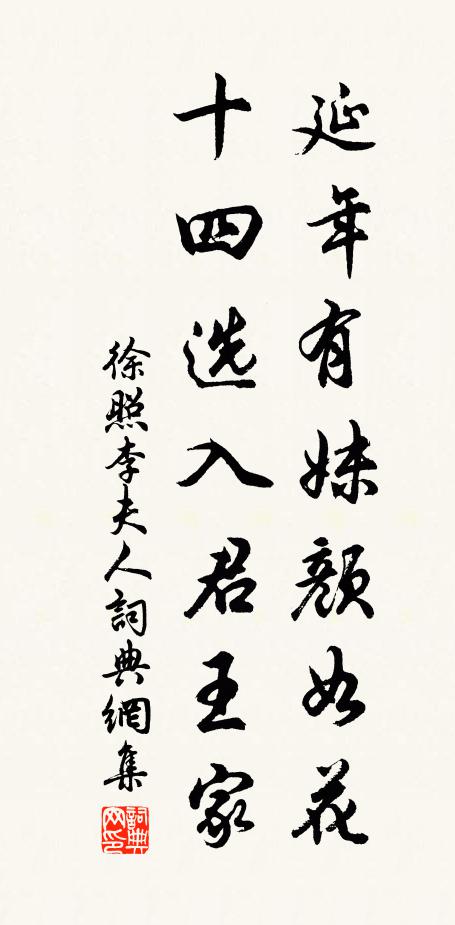 延年有妹顔如花
十四选入君王家
徐照李夫人詞典網集
詞典网印